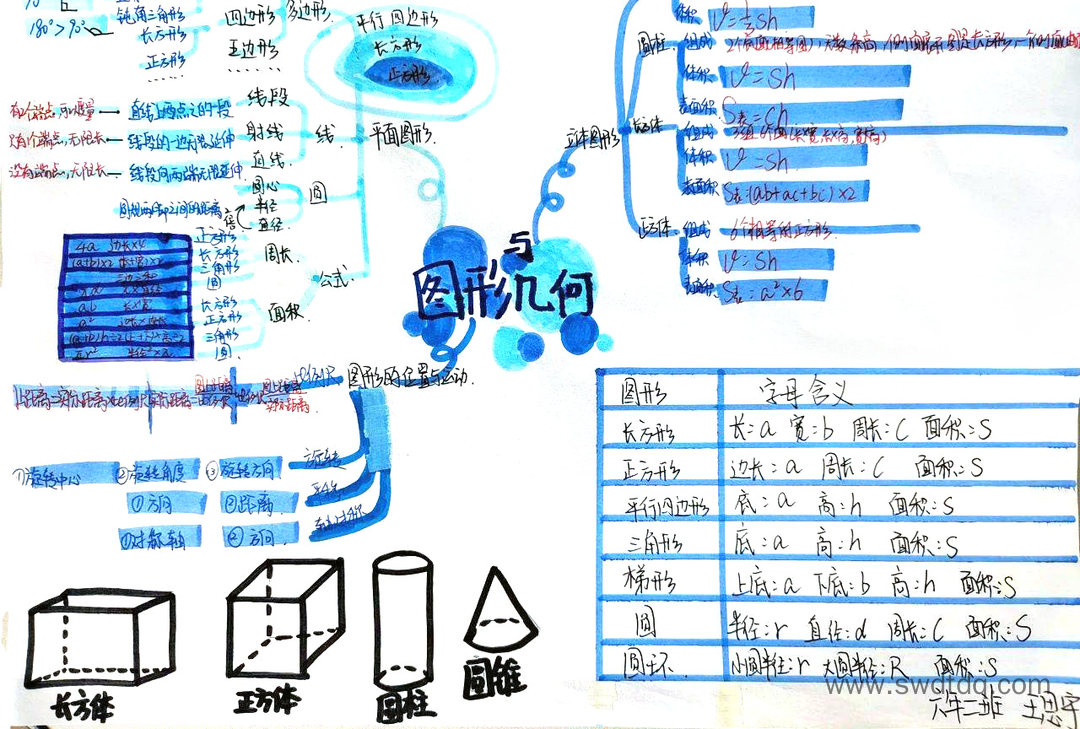 180°>90°
钝角三角形
长方形
正方形
……
四边形
五边形
……
多边形
平行四边形
长方形
正方形
平面图形
线
线段
直线上两点之间的段
射线
线段的一边无限延伸
直线
线段向两端无限延伸
没有端点,无限长
圆
圆心
半径
直径
2倍
圆规两脚之间的距离
公式
周长
正方形
长方形
三角形
圆
4a 边长×4
面积
长方形
正方形
三角形
圆
ab 长×宽
a²
πr²
图形与几何
立体图形
体积
V=⅓sh
圆柱
组成
体积
V=sh
表面积
S表=ch
长方体
组成
体积
V=sh
表面积
S表:(ab+ac+bc)×2
正方体
组成
6个相等的正方形
体积
V=sh
表面积
S表:a²×6
图形的位置与运动
比例尺
旋转
①旋转中心 ②旋转角度 ③旋转方向
平移
①方向 ②距离
轴对称
①对称轴 ②方向
长方体
正方体
圆柱
圆锥
图形 字母含义
长方形 长:a 宽:b 周长:C 面积:S
正方形 边长:a 周长:C 面积:S
平行四边形 底:a 高:h 面积:S
三角形 底:a 高:h 面积:S
梯形 上底:a 下底:b 高:h 面积:S
圆 半径:r 直径:d 周长:C 面积:S
圆环 小圆半径:r 大圆半径:R 面积:S
www.swdtdq.com
六年二班 王思宇